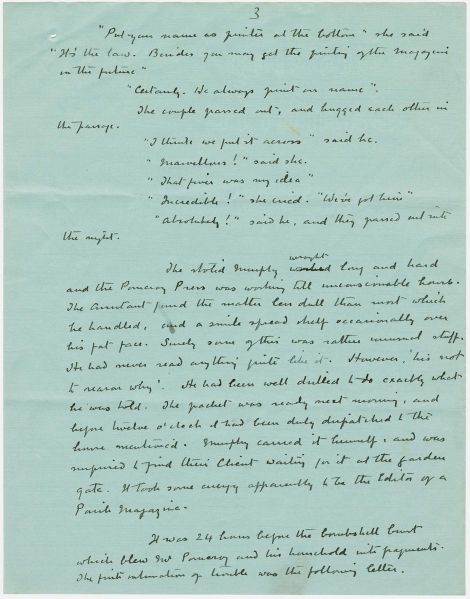 3
"Put your name as printer at the bottom" she said
"It's the law. Besides you may get the printing of the Magazine
in the future"
"Certainly. We always print our name".
The couple passed out, and hugged each other in
the passage.
"I think we put it across" said he.
"Marvellous!" said she.
"That fiver was my idea"
"Incredible!" she cried. "We've got him"
"Absolutely!" said he, and they passed out into
the night.
The stolid Murphy wrought long and hard
and the Pomeroy Press was working till unconscionable hours.
The assistant found the matter less dull than most which
he handled, and a smile spread itself occasionally over
his fat face. Surely some of this was rather unusual stuff.
He had never read anything quite like it. However, 'his not
to reason why'. He had been well drilled to do exactly what
he was told. The packet was ready next morning, and
before twelve o'clock it had been duly dispatched to the
house mentioned. Murphy carried it himself, and was
surprised to find their Client waiting for it at the garden
gate. It took some energy apparently to be the Editor of a
Parish Magazine.
It was 24 hours before the bombshell burst
which blew Mr Pomeroy and his household into fragments.
The first intimation of trouble was the following letter.